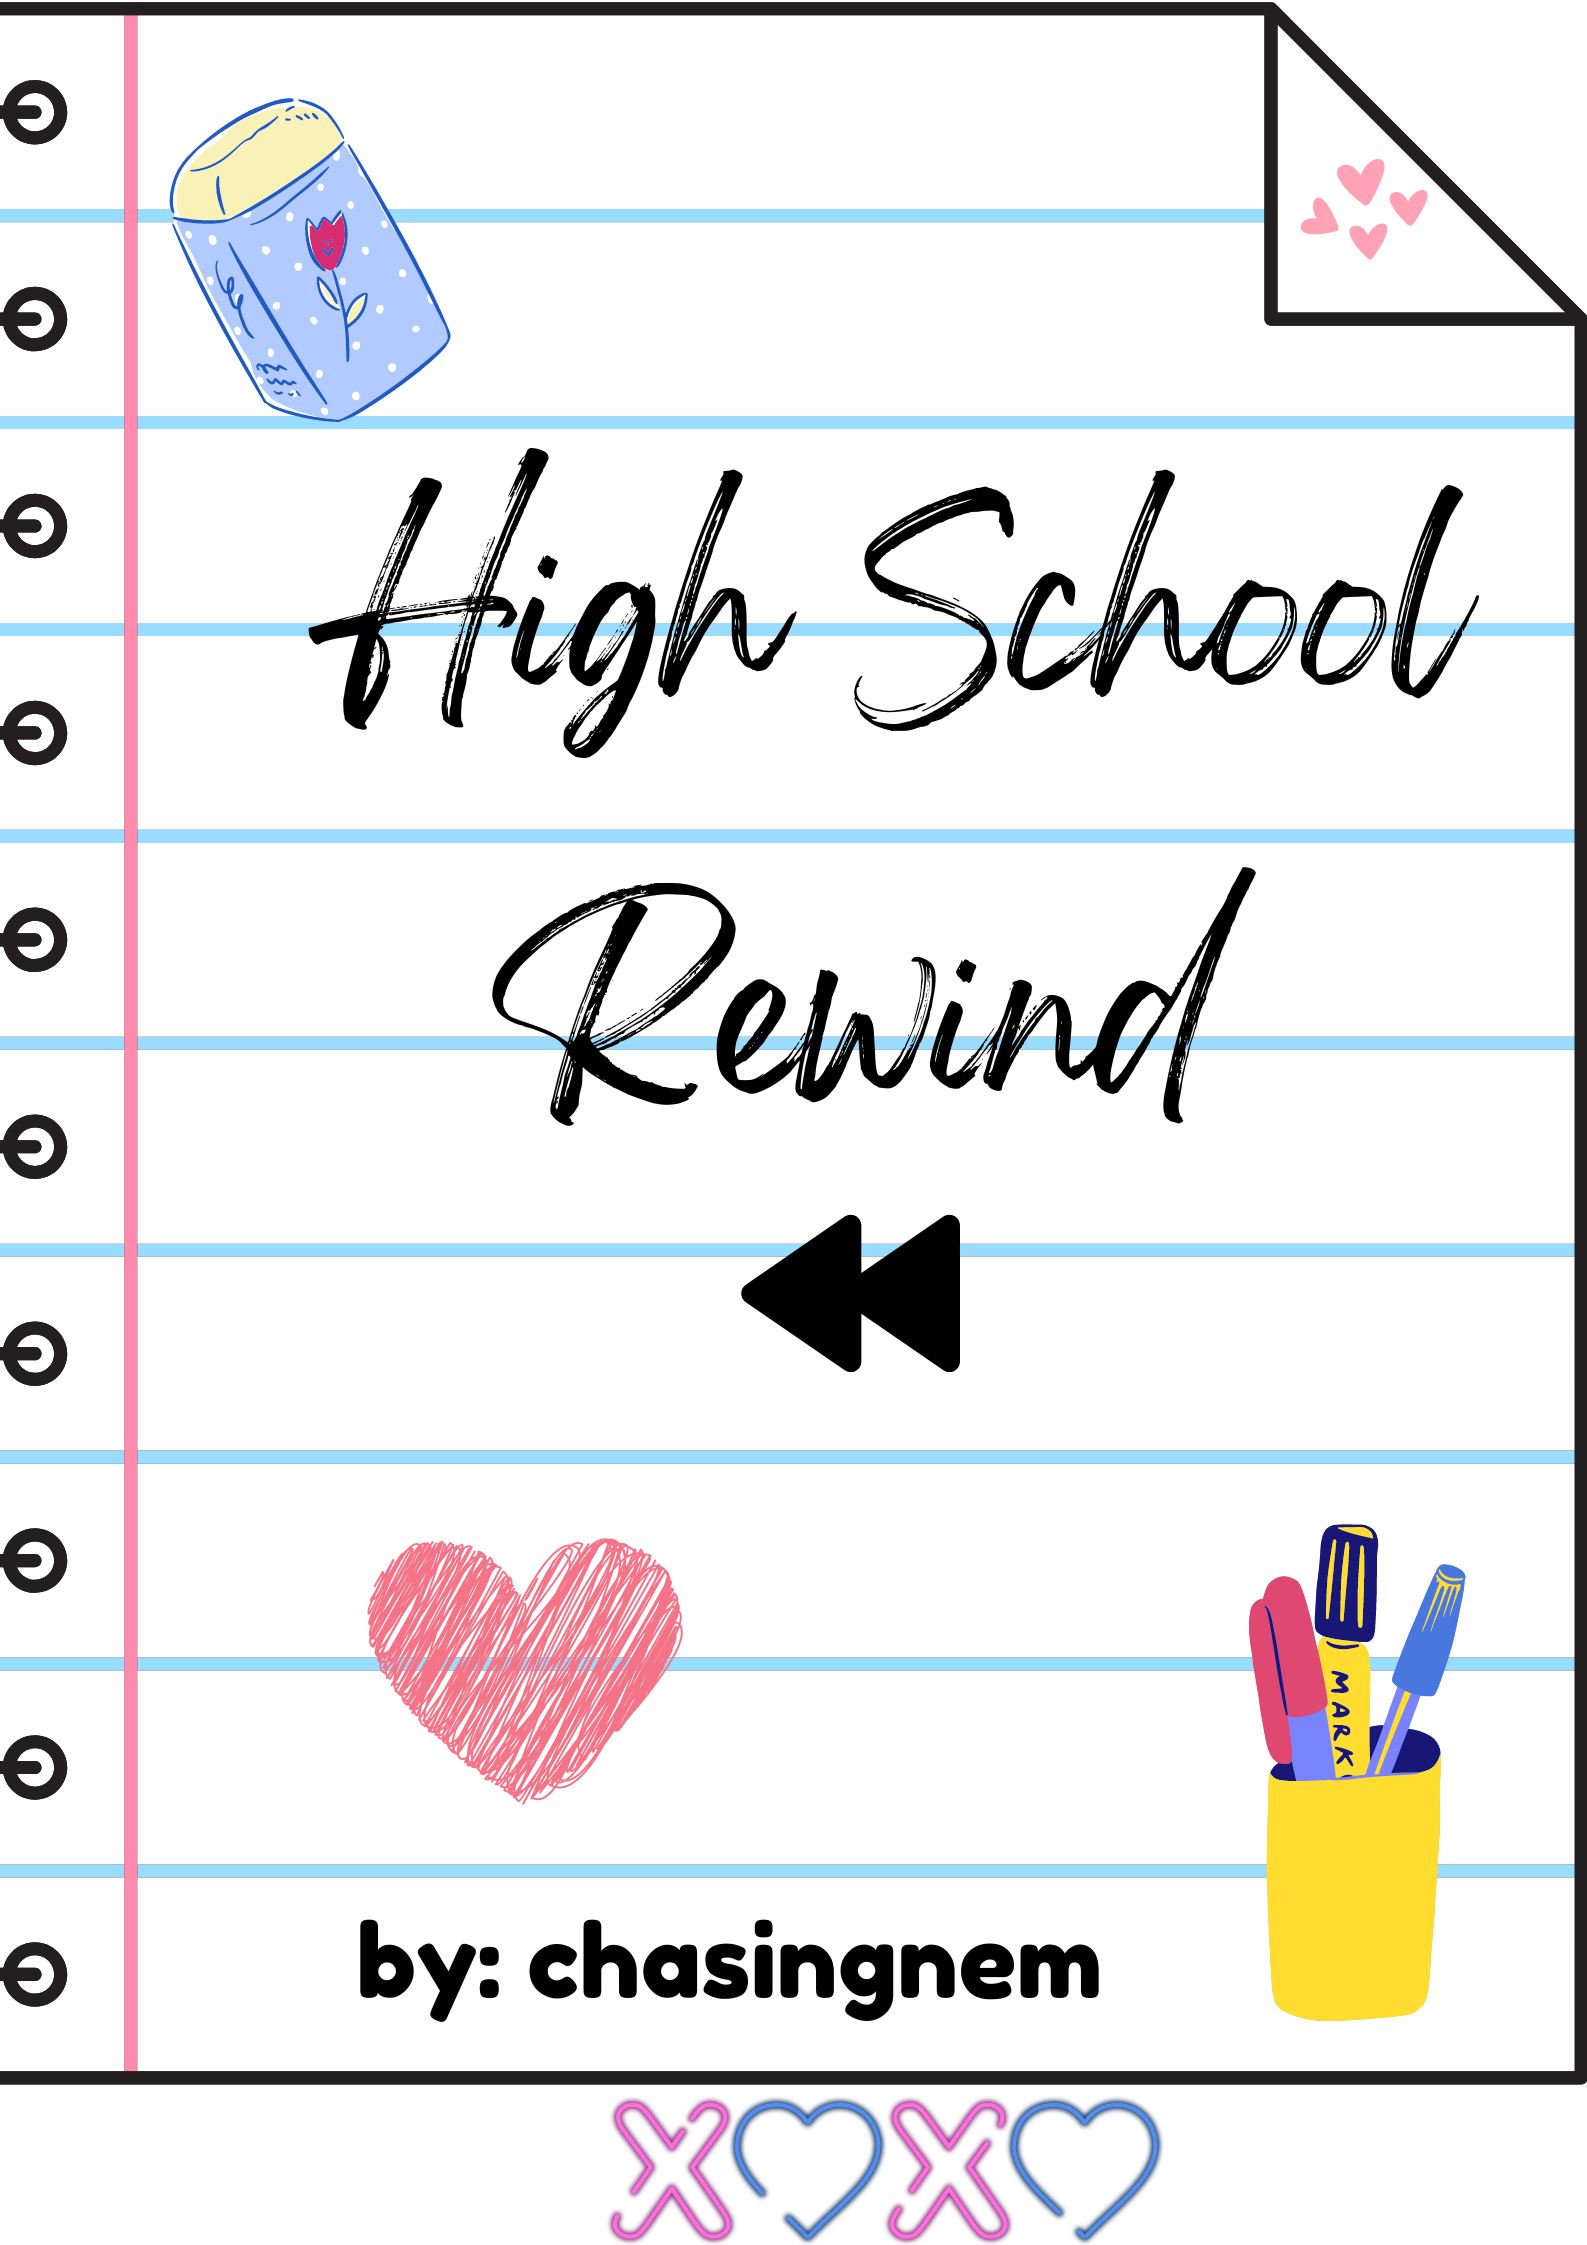 High School
Rewind
MARK
by: chasingnem
XOXO